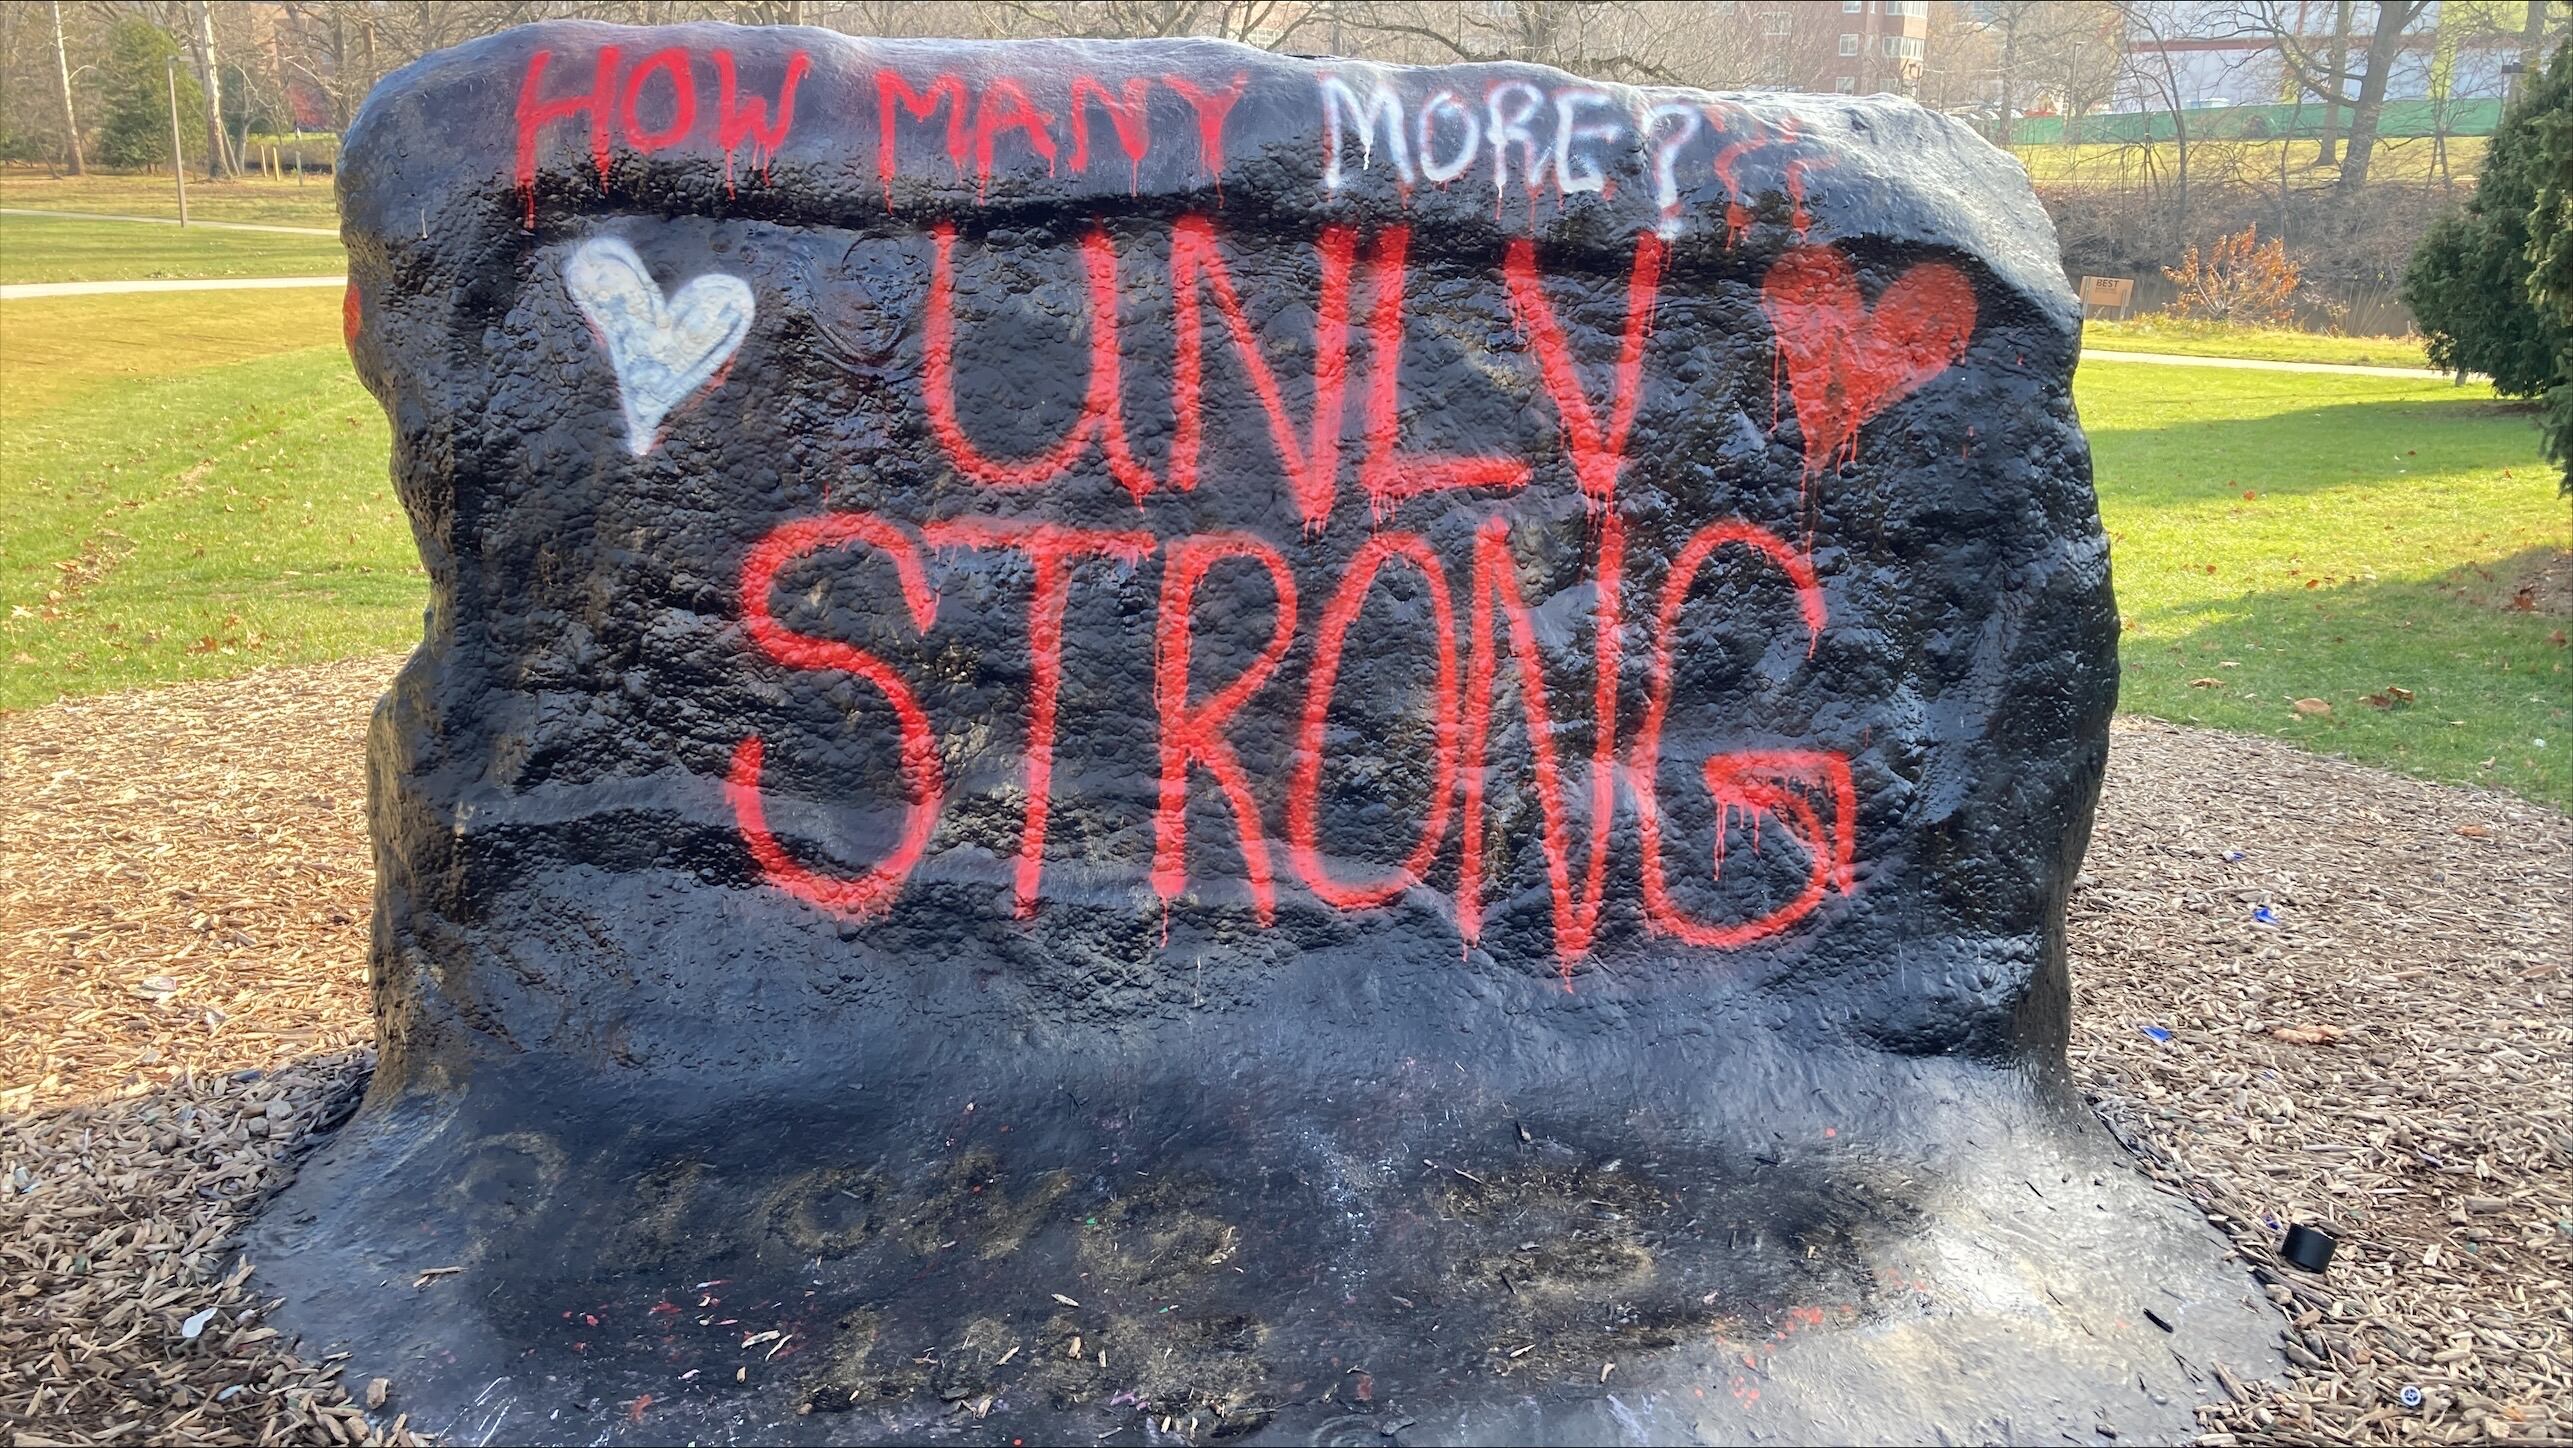 HOW MANY MORE???
UNLV
STRONG
BEST